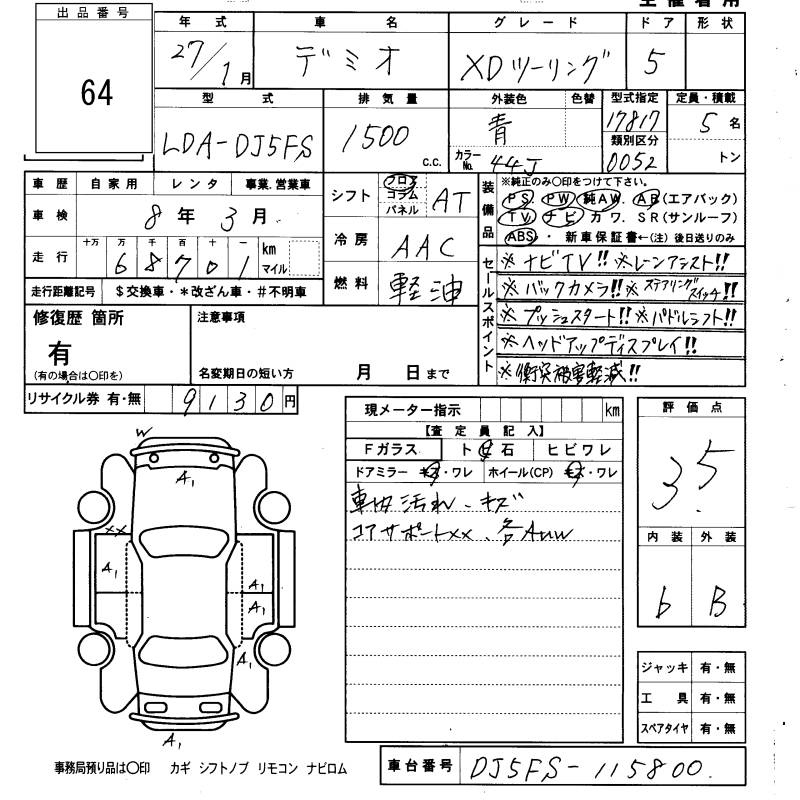 主催者用
出品番号
64
年式 車名 グレード ドア 形状
27/1月 デミオ XDツーリング 5
型式 排気量 外装色 色替 型式指定 定員・積載
LDA-DJ5FS 1500 c.c. 青 17817 5名
類別区分
カラーNo. 44J 0052 トン
車歴 自家用 レンタ 事業.営業車
車検 8年 3月
走行 十万 万 千 百 十 一 km マイル
6 8 7 0 1
走行距離記号 $交換車・*改ざん車・#不明車
シフト フロア コラム パネル AT
冷房 AAC
燃料 軽油
装備品
※純正のみ○印をつけて下さい。
PS PW 純AW. AB(エアバック)
TV ナビ カワ. SR(サンルーフ)
ABS・ 新車保証書←(注) 後日送りのみ
セールスポイント
※ナビTV!! ※レーンアシスト!!
※バックカメラ!! ※ステアリングスイッチ!!
※プッシュスタート!! ※パドルシフト!!
※ヘッドアップディスプレイ!!
※衝突被害軽減!!
修復歴 箇所
有
(有の場合は○印を)
注意事項
名変期日の短い方 月 日まで
リサイクル券 有・無 9130円
現メーター指示 km
【査定員記入】
Fガラス ト 石 ヒビワレ
ドアミラー キズ・ワレ ホイール(CP) キズ・ワレ
車内汚れ、キズ
コアサポートxx、各AUW
評価点
3.5
内装 外装
b B
W
A1
xx
A1
A1
A1
A1
A1
ジャッキ 有・無
工具 有・無
スペアタイヤ 有・無
事務局預り品は○印 カギ シフトノブ リモコン ナビロム
車台番号 DJ5FS-115800.